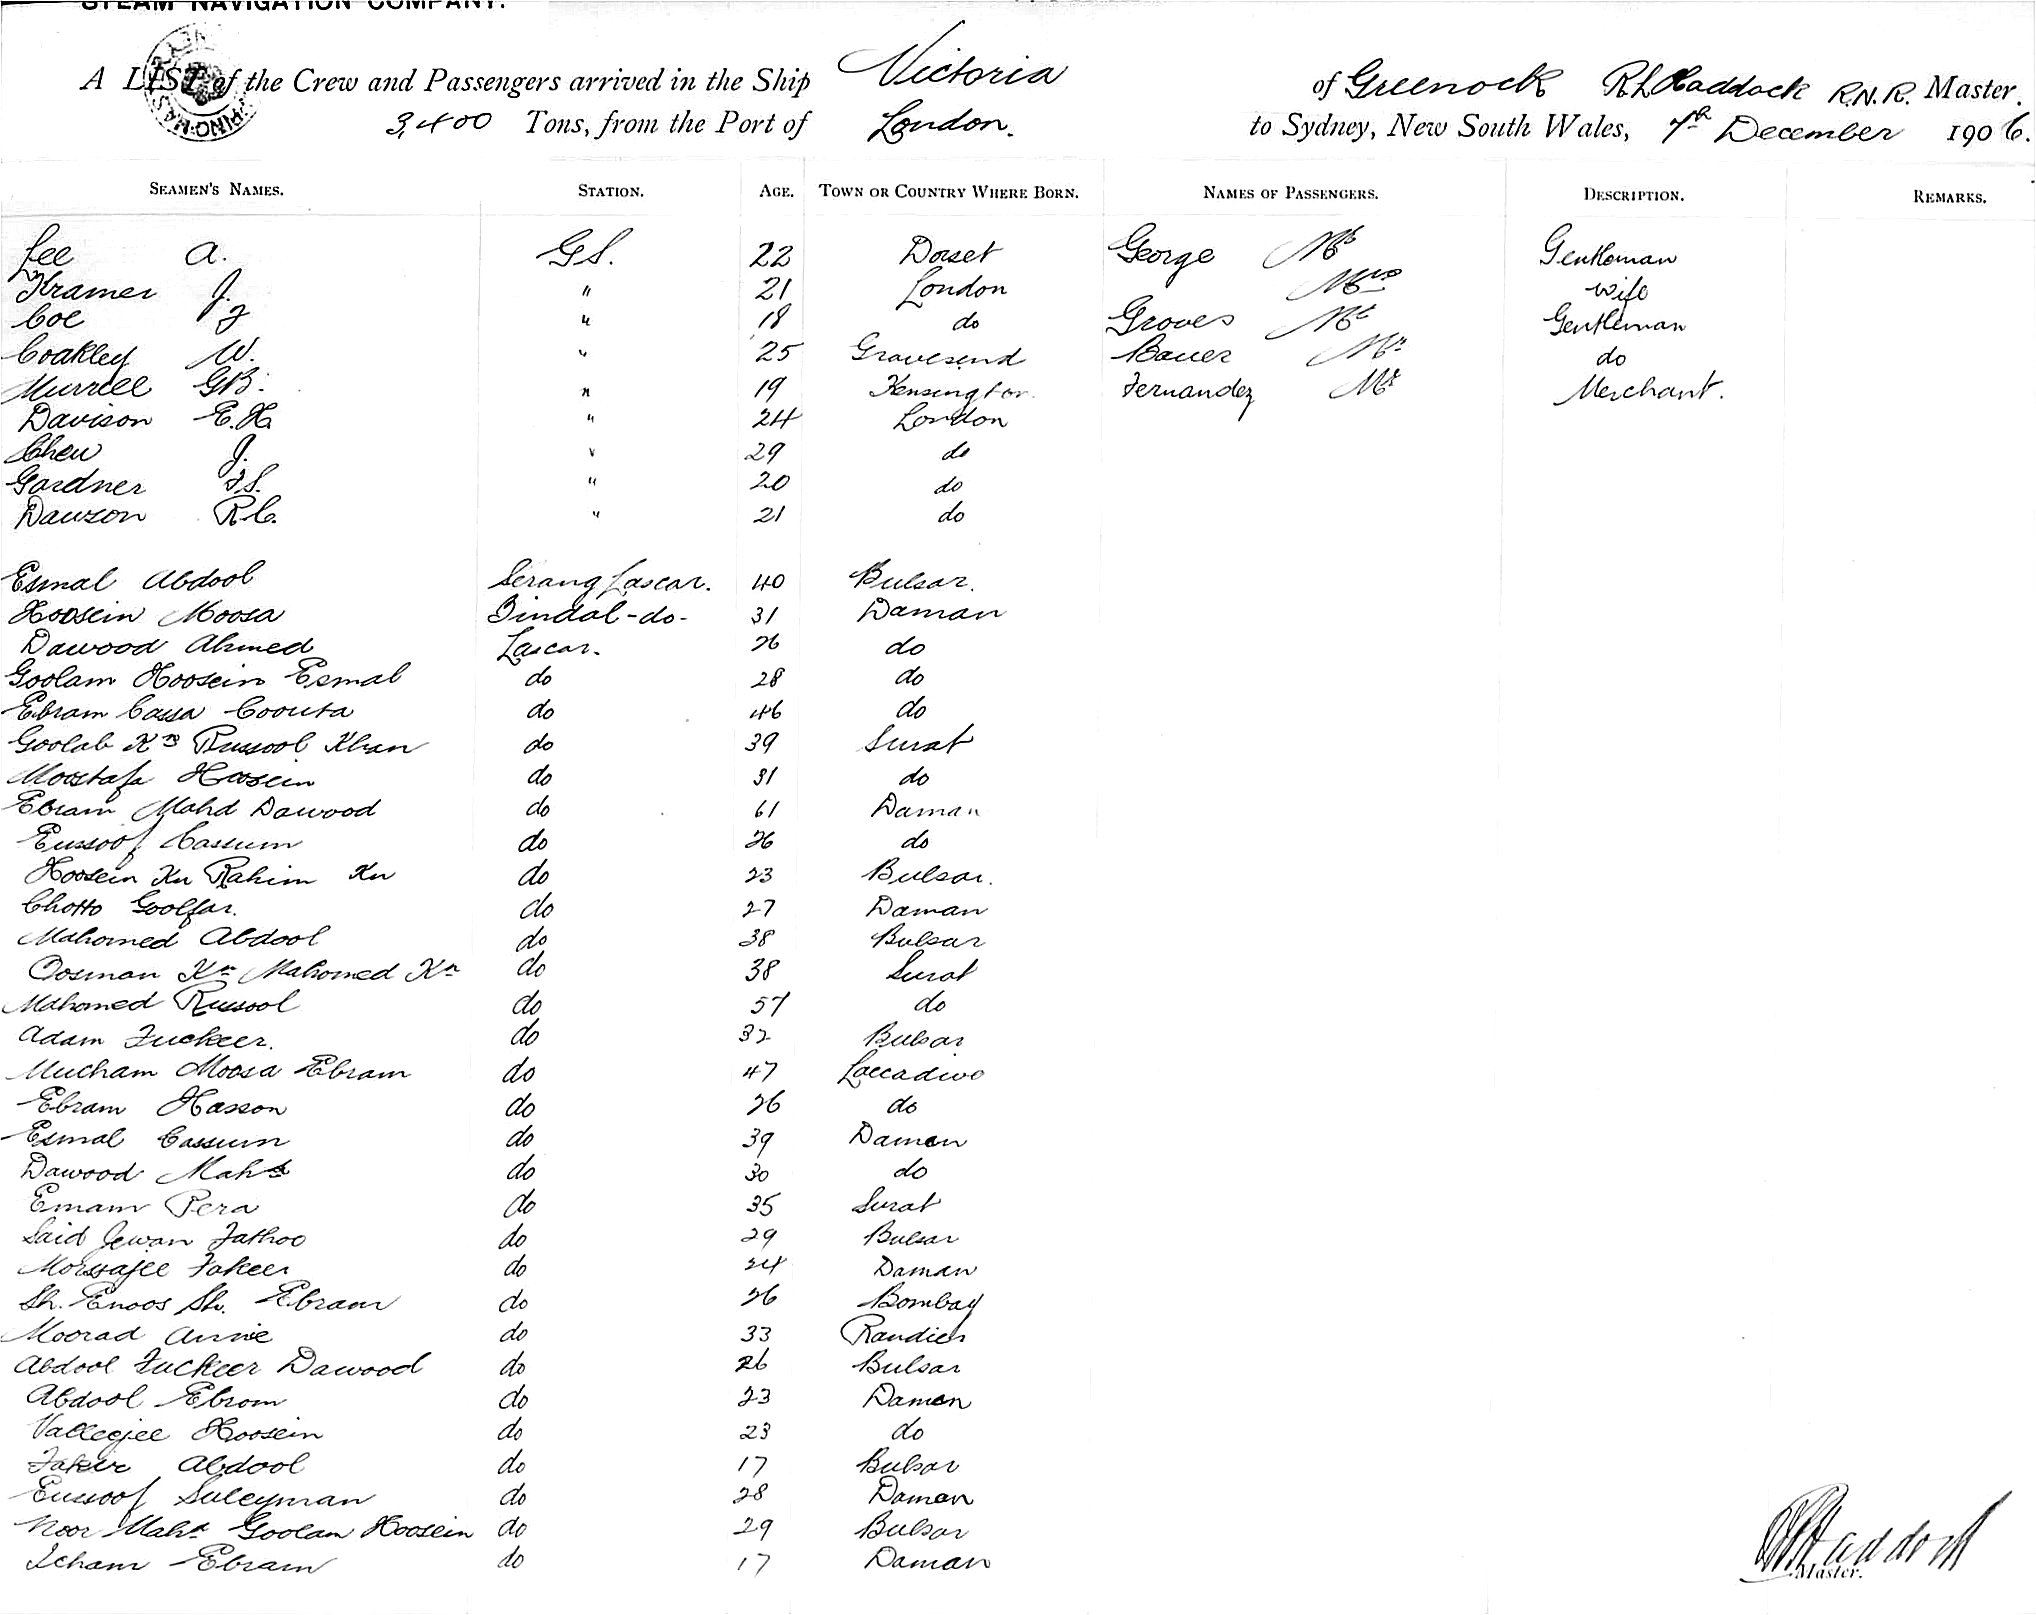 STEAM NAVIGATION COMPANY.
A LIST of the Crew and Passengers arrived in the Ship Victoria of Greenock R L Haddock R.N.R. Master.
3,400 Tons, from the Port of London. to Sydney, New South Wales, 7th December 1906.
SEAMEN'S NAMES. STATION. AGE. TOWN OR COUNTRY WHERE BORN. NAMES OF PASSENGERS. DESCRIPTION. REMARKS.
Lee A. G.S. 22 Dorset George Mr Gentleman
Kramer J. " 21 London Mrs wife
Coe F " 18 do Groves Mr Gentleman
Coakley W. " 25 Gravesend Bauer Mr do
Murrell G.B. " 19 Kensington Fernandez Mr Merchant.
Davison E.H. " 24 London
Chew J. " 29 do
Gardner F.S. " 20 do
Dawson R.C. " 21 do
Esmal Abdool Serang Lascar. 40 Bulsar.
Hoosein Moosa Tindal -do- 31 Daman
Dawood Ahmed Lascar. 26 do
Goolam Hoosein Esmal do 28 do
Ebram Cassa do 46 do
Goolab Kn Russool Khan do 39 Surat
Moostafa Hoosein do 31 do
Ebram Mahd Dawood do 61 Daman
Eussoof Cassum do 26 do
Hoosein Kn Rahim Kn do 23 Bulsar.
Chotto Goolfar. do 27 Daman
Mahomed Abdool do 38 Bulsar
Oosman Kn Mahomed Kn do 38 Surat
Mahomed Russool do 57 do
Adam Fuckeer. do 32 Bulsar
Mucham Moosa Ebram do 47 Laccadive
Ebram Hasson do 26 do
Esmal Cassum do 39 Daman
Dawood Mahd do 30 do
Emam Pera do 35 Surat
Said Jewan Fathoo do 29 Bulsar
Fakeer do 24 Daman
Sh. Enoos Sh. Ebram do 26 Bombay
Moorad do 33 Randier
Abdool Fuckeer Dawood do 26 Bulsar
Abdool Ebram do 23 Daman
Vallejee Hoosein do 23 do
Fakir Abdool do 17 Bulsar
Eussoof Suleyman do 28 Daman
Noor Mahd Goolam Hoosein do 29 Bulsar
Ebram do 17 Daman
R L Haddock
Master.